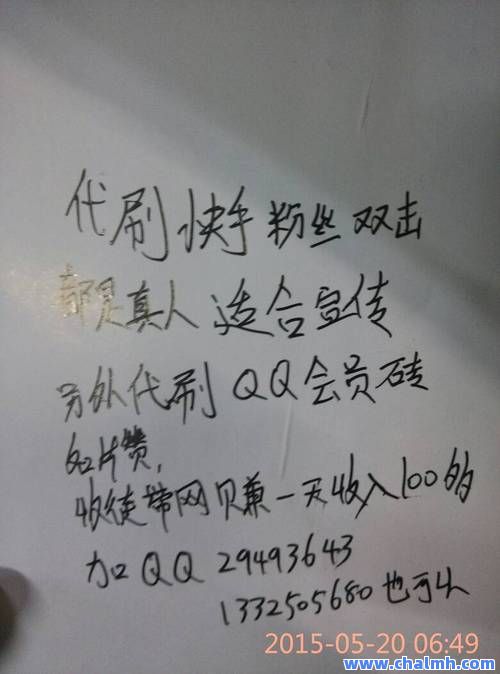 代刷快手粉丝双击
都是真人适合宣传
另外代刷QQ会员砖
名片赞,
收徒带网贝兼一天收入100多
加QQ 29493643
1332505680也可以
2015-05-20 06:49
www.chalmh.com